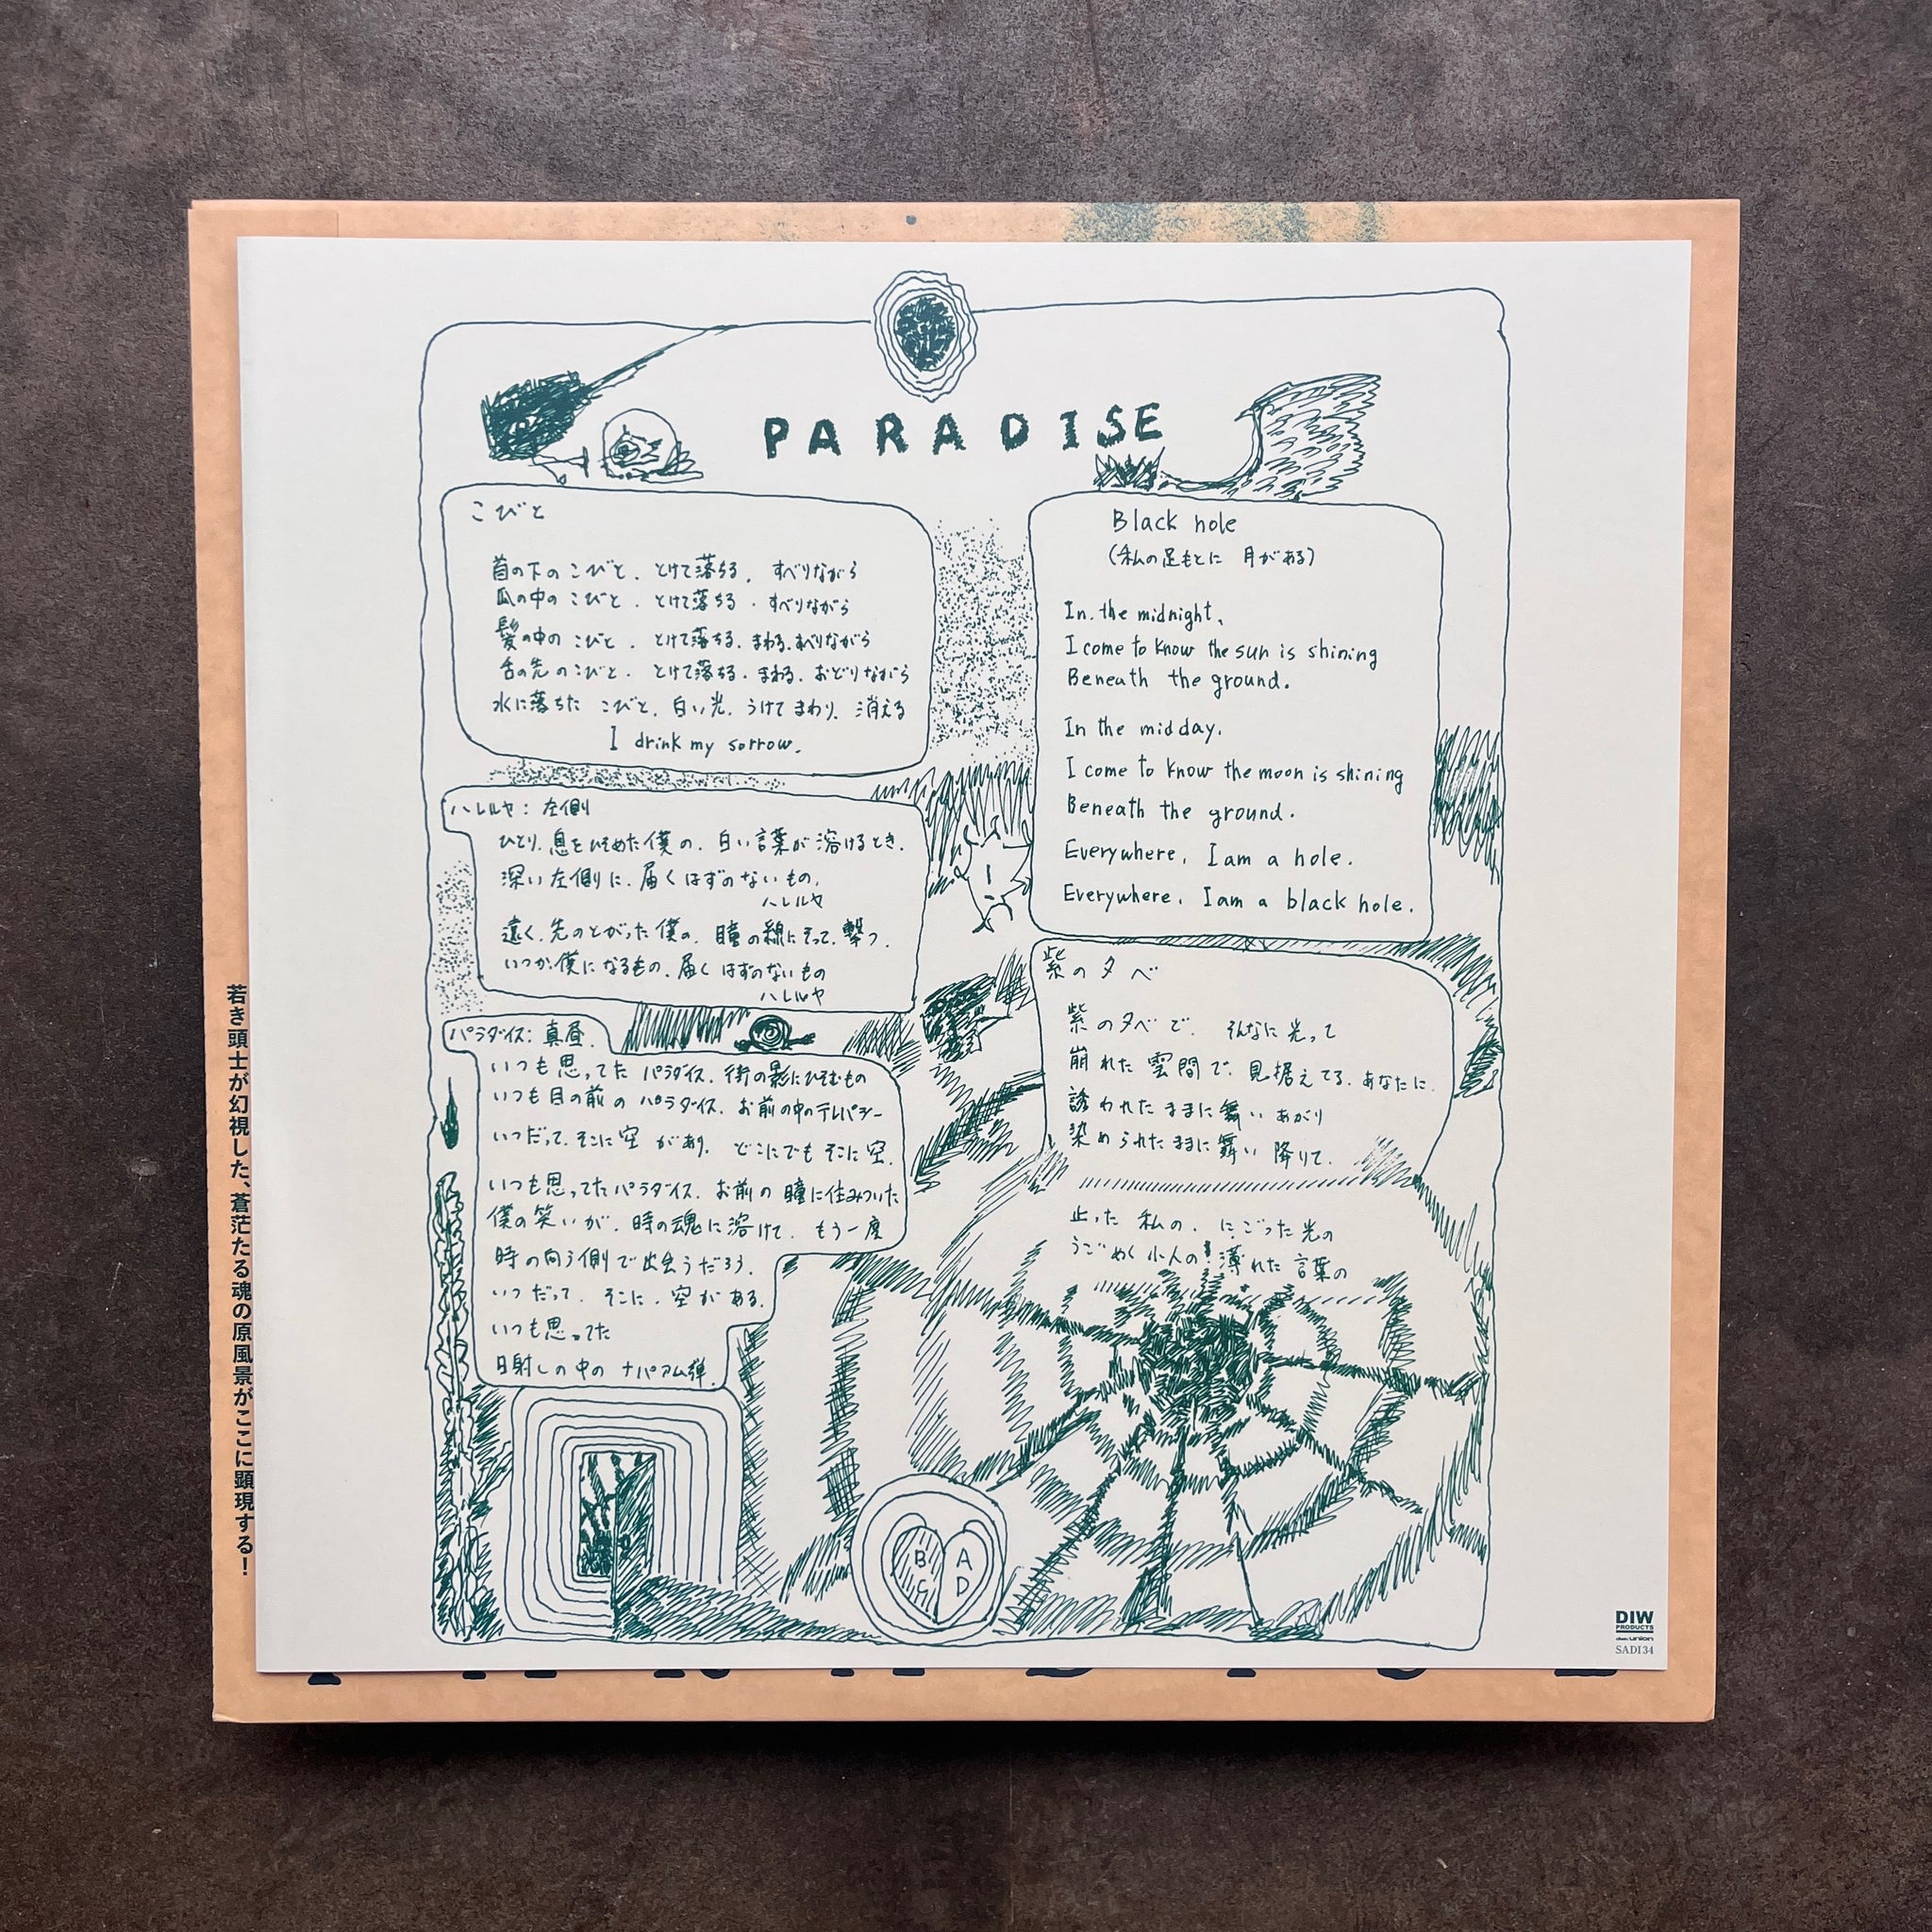 PARADISE
こびと
首の下のこびと. とけて落ちる. すべりながら
爪の中のこびと. とけて落ちる. すべりながら
髪の中の こびと. とけて落ちる. まわる. すべりながら
舌の先のこびと. とけて落ちる. まわる. おどりながら
水に落ちた こびと. 白い光. うけて まわり. 消える
I drink my sorrow.
ハレルヤ: 左側
ひとり. 息をひそめた僕の. 白い言葉が溶けるとき.
深い左側に. 届くはずのないもの.
ハレルヤ
遠く. 先のとがった僕の. 瞳の線にそって. 撃つ.
いつか. 僕になるもの. 届くはずのないもの
ハレルヤ
パラダイス: 真昼.
いつも思ってた パラダイス. 街の影にひそむもの
いつも目の前の パラダイス. お前の中のテレパシー
いつだって. そこに空 があり. どこにでも そこに空.
いつも思ってたパラダイス. お前の 瞳に住みついた
僕の笑いが. 時の魂に溶けて. もう一度
時の向う側で出会うだろう.
いつだって. そこに. 空がある.
いつも思ってた
日射しの中の ナパアム弾.
Black hole
(私の足もとに 月がある)
In the midnight,
I come to know the sun is shining
Beneath the ground.
In the midday.
I come to know the moon is shining
Beneath the ground.
Everywhere, I am a hole.
Everywhere, I am a black hole.
紫の夕べ
紫の夕べで. そんなに光って
崩れた 雲間で. 見据えてる. あなたに.
誘われたままに 舞い あがり
染められたままに 舞い 降りて.
止った 私の. にごった光の
うごめく 小人の 薄れた 言葉の
B A
C D
若き頭士が幻視した、蒼茫たる魂の原風景がここに顕現する！
DIW
PRODUCTS
disk union
SADI34